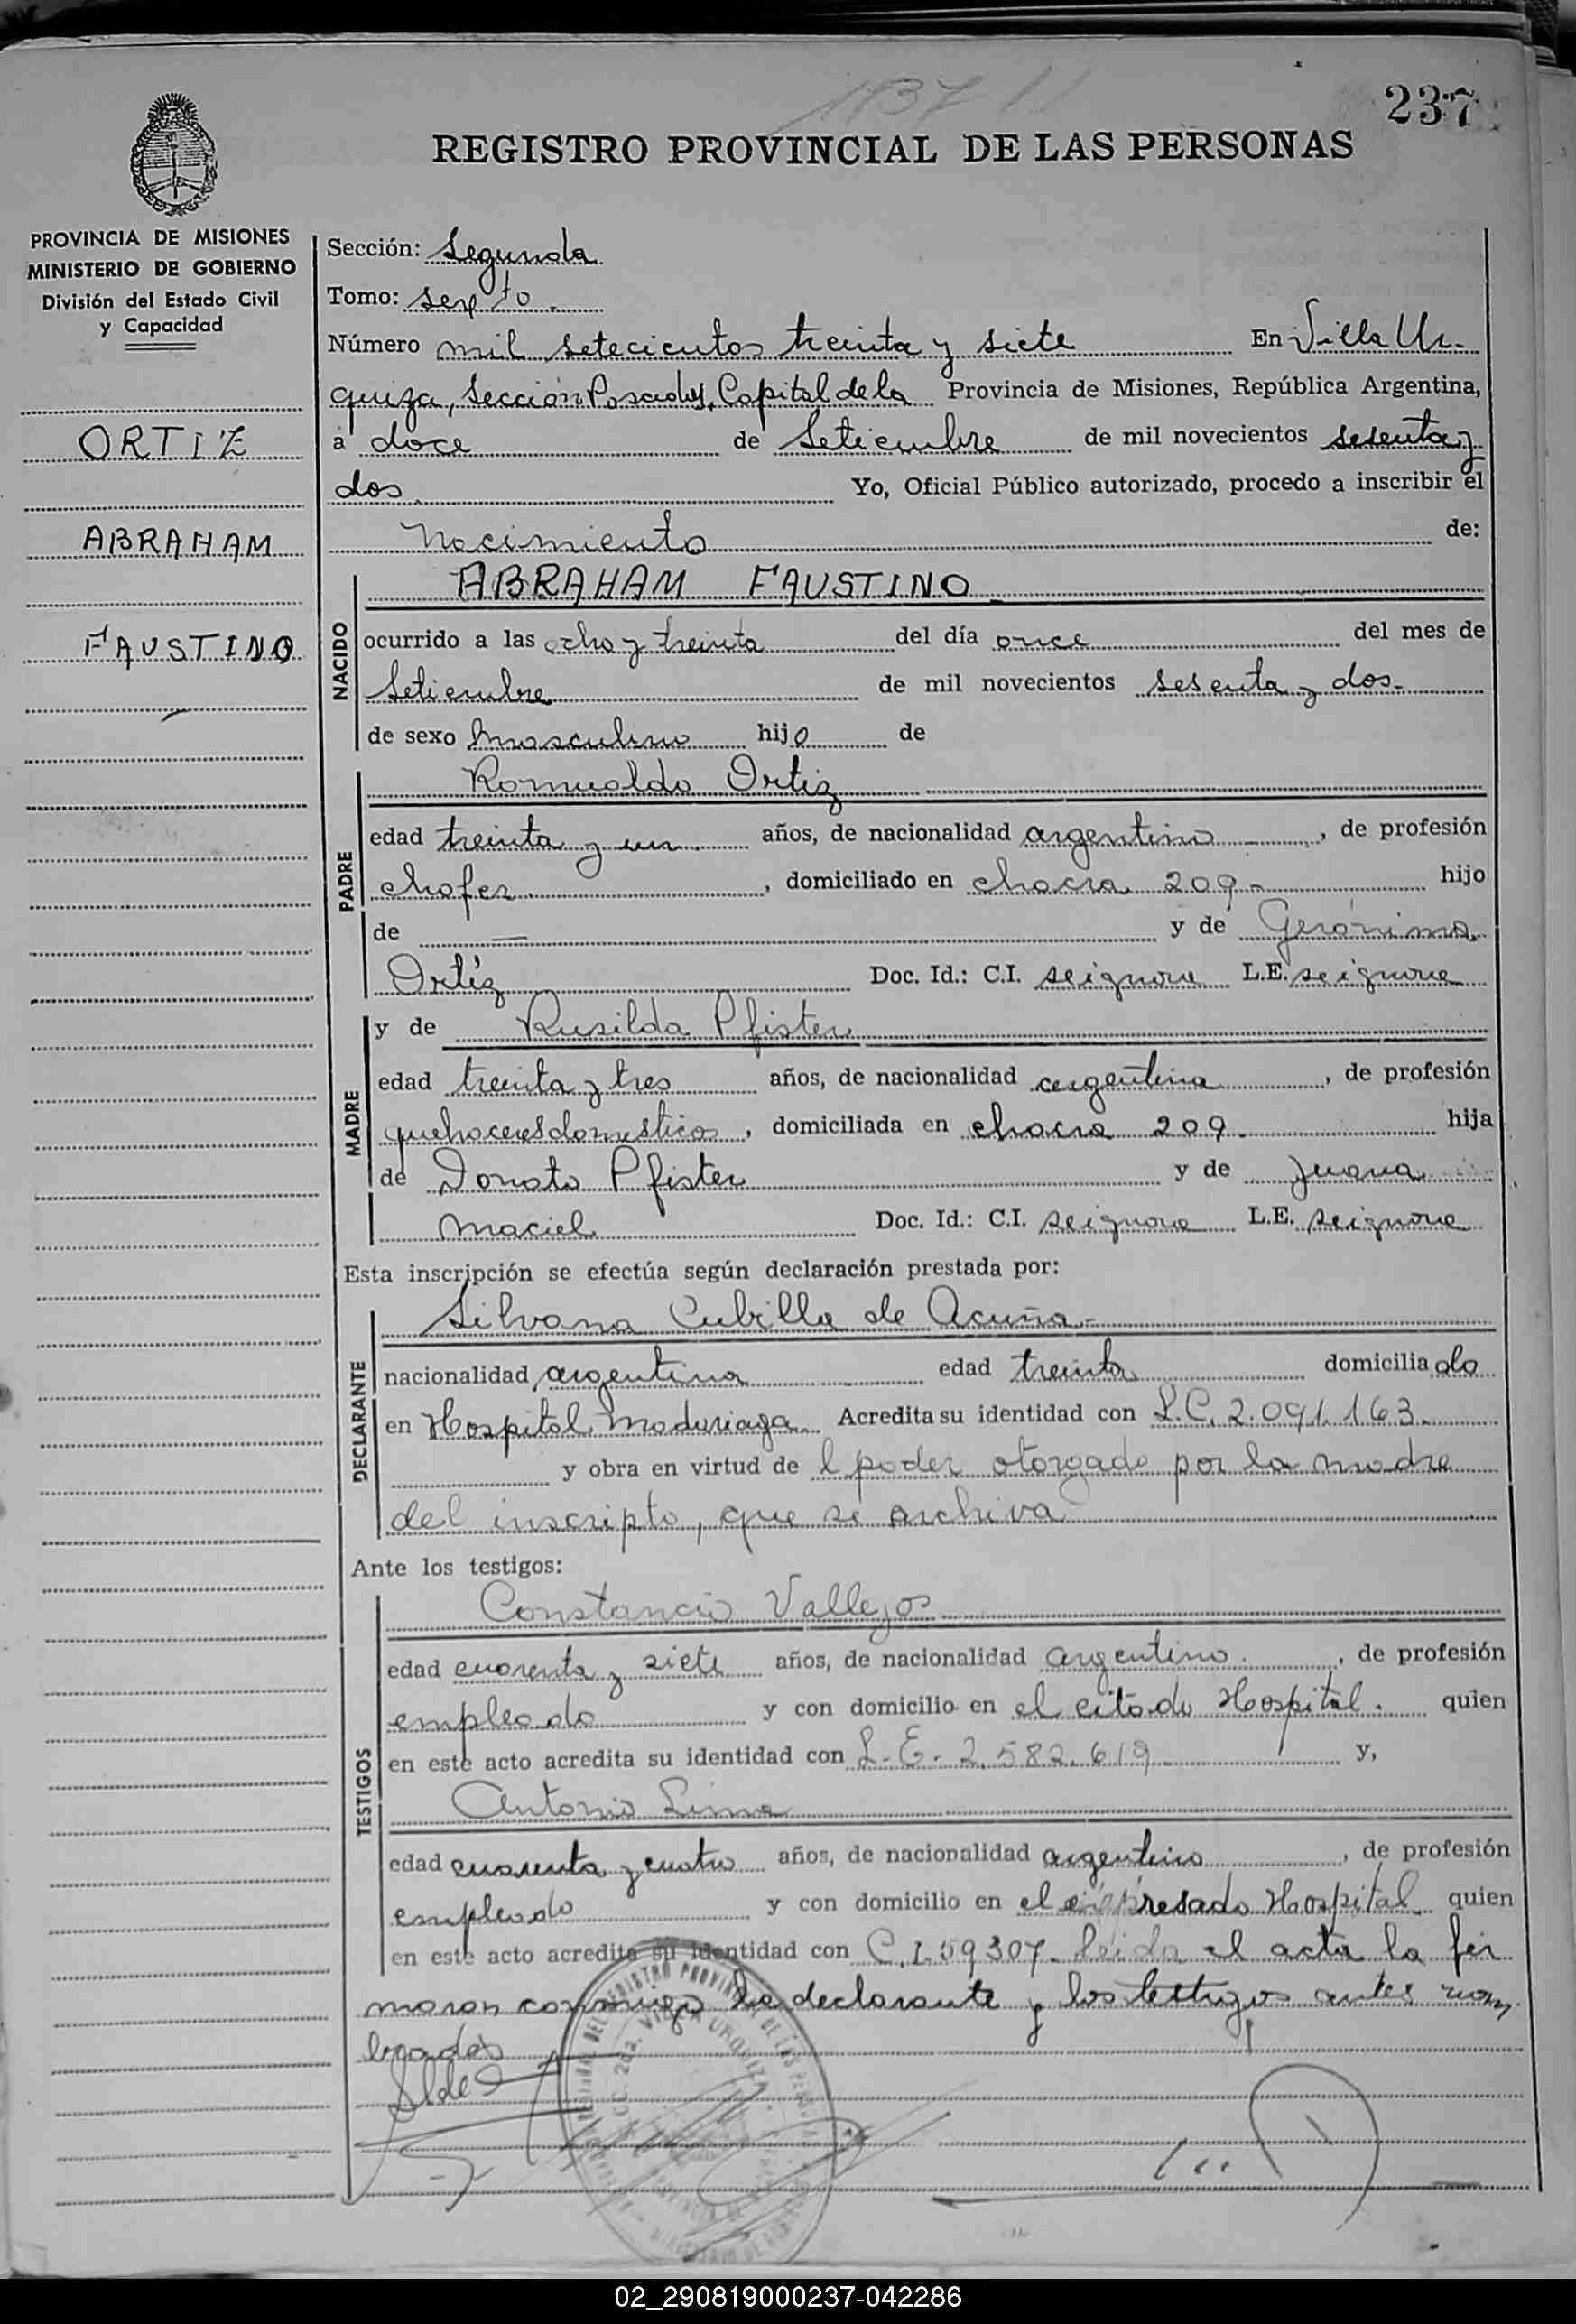 1737
237
REGISTRO PROVINCIAL DE LAS PERSONAS
PROVINCIA DE MISIONES
MINISTERIO DE GOBIERNO
División del Estado Civil
y Capacidad
ORTIZ
ABRAHAM
FAUSTINO
Sección: Segunda
Tomo: sexto
Número mil setecientos treinta y siete En Villa Ur-
quiza, Sección Posadas, Capital de la Provincia de Misiones, República Argentina,
a doce de Setiembre de mil novecientos sesenta y
dos Yo, Oficial Público autorizado, procedo a inscribir el
Nacimiento de:
NACIDO
ABRAHAM FAUSTINO
ocurrido a las ocho y treinta del día once del mes de
Setiembre de mil novecientos sesenta y dos-
de sexo masculino hijo de
PADRE
Romualdo Ortiz
edad treinta y un años, de nacionalidad argentino, de profesión
chofer, domiciliado en chacra 209- hijo
de — y de Gerónima
Ortíz Doc. Id.: C.I. se ignora L.E. se ignora
MADRE
y de Rusilda Pfister
edad treinta y tres años, de nacionalidad argentina, de profesión
quehaceres domesticos, domiciliada en chacra 209. hija
de Donato Pfister y de Juana
Maciel Doc. Id.: C.I. se ignora L.E. se ignora
Esta inscripción se efectúa según declaración prestada por:
DECLARANTE
Silvana Cubilla de Acuña-
nacionalidad argentina edad treinta domiciliada
en Hospital Madariaga Acredita su identidad con L.C. 2.091.163.
y obra en virtud de l poder otorgado por la madre
del inscripto, que se archiva
Ante los testigos:
TESTIGOS
Constancio Vallejos
edad cuarenta y siete años, de nacionalidad argentino, de profesión
empleado y con domicilio en el citado Hospital. quien
en este acto acredita su identidad con L.E. 2.582.619 y,
Antonio Lima
edad cuarenta y cuatro años, de nacionalidad argentino, de profesión
empleado y con domicilio en el expresado Hospital quien
en este acto acredita su identidad con C.I. 59307. Leida el acta la fir
maron conmigo la declarante y los testigos antes nom
brados
02_290819000237-042286